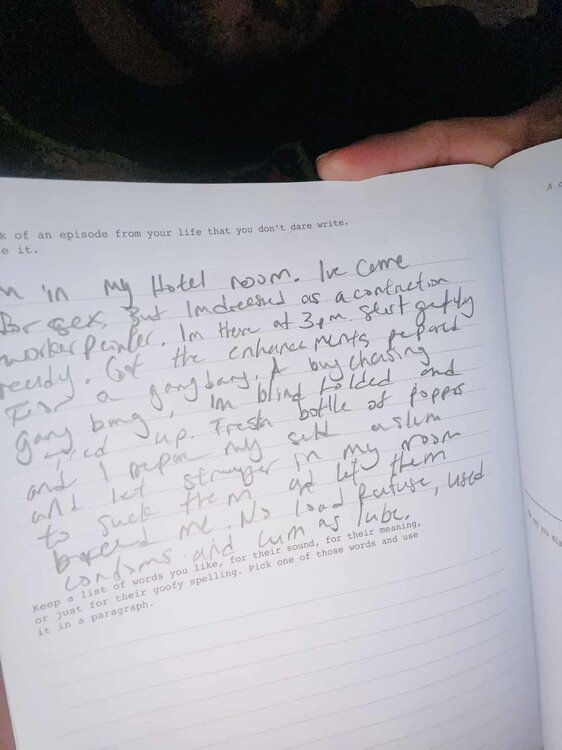 k of an episode from your life that you don't dare write.
e it.
in my Hotel room. Ive come
for sex, But Im dressed as a contraction
worker painter. Im there at 3pm. start getting
ready. Got the enhancements prepared
For a gang bang. A buy chasing
gang bang, Im blind folded and
up. Fresh bottle of poppers
and I prepare my self a slum
and let stranger in my room
to suck them and let them
breed me. No load refuse, used
condoms and cum as lube.
Keep a list of words you like, for their sound, for their meaning,
or just for their goofy spelling. Pick one of those words and use
it in a paragraph.
A c